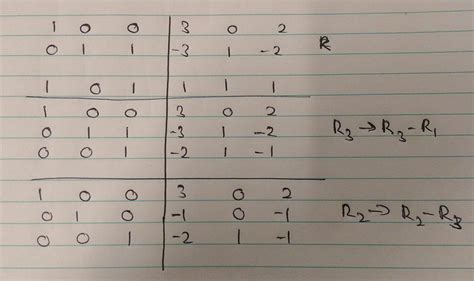 1 0 0 | 3 0 2
0 1 1 | -3 1 -2
1 0 1 | 1 1 1
1 0 0 | 3 0 2
0 1 1 | -3 1 -2 R₃→R₃-R₁
0 0 1 | -2 1 -1
1 0 0 | 3 0 2
0 1 0 | -1 0 -1 R₂→R₂-R₃
0 0 1 | -2 1 -1